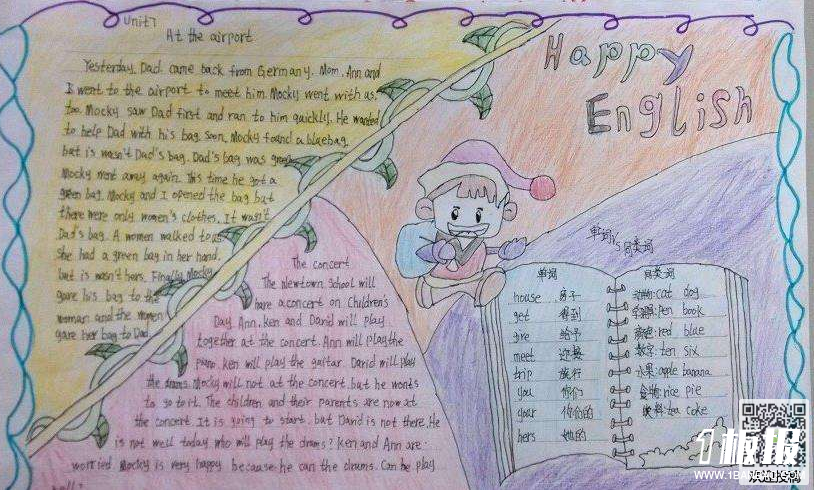 Unit7
At the airport
Yesterday, Dad came back from Germany. Mom. Ann and
I went to the airport to meet him. Mocky went with us.
too. Mocky saw Dad first and ran to him quickly. He wanted
to help Dad with his bag soon. Mocky found a bluebag.
but is wasn't Dad's bag. Dad's bag was green
Mocky went away again. This time he got a
green bag. Mocky and I opened the bag but
there were only women's clothes. It wasn't
Dad's bag. A women walked to us
She had a green bag in her hand.
but is wasn't hers. Finally Mocky
gave his bag to the
woman and the women
gave her bag to Dad
The concert
The Newtown School will
have a concert on Children's
Day. Ann. Ken and David will play
together at the concert. Ann will play the
piano. Ken will play the guitar. David will play
the drums. Mocky will not at the concert. but he wants
to go to it. The children and their parents are now at
the concert. It is going to start. but David is not there. He
is not well today who will play the drams? Ken and Ann are
worried Mocky is very happy because he can the drums. Can he play
Happy
English
单词
house 房子
get 得到
give 给予
meet 迎接
trip 旅行
you 你们
your 你们的
hers 她的
同类词
动物:cat dog
pen book
颜色:red blue
数字:ten six
水果:apple banana
食物:rice pie
饮料:tea coke
1板报
欢迎投稿